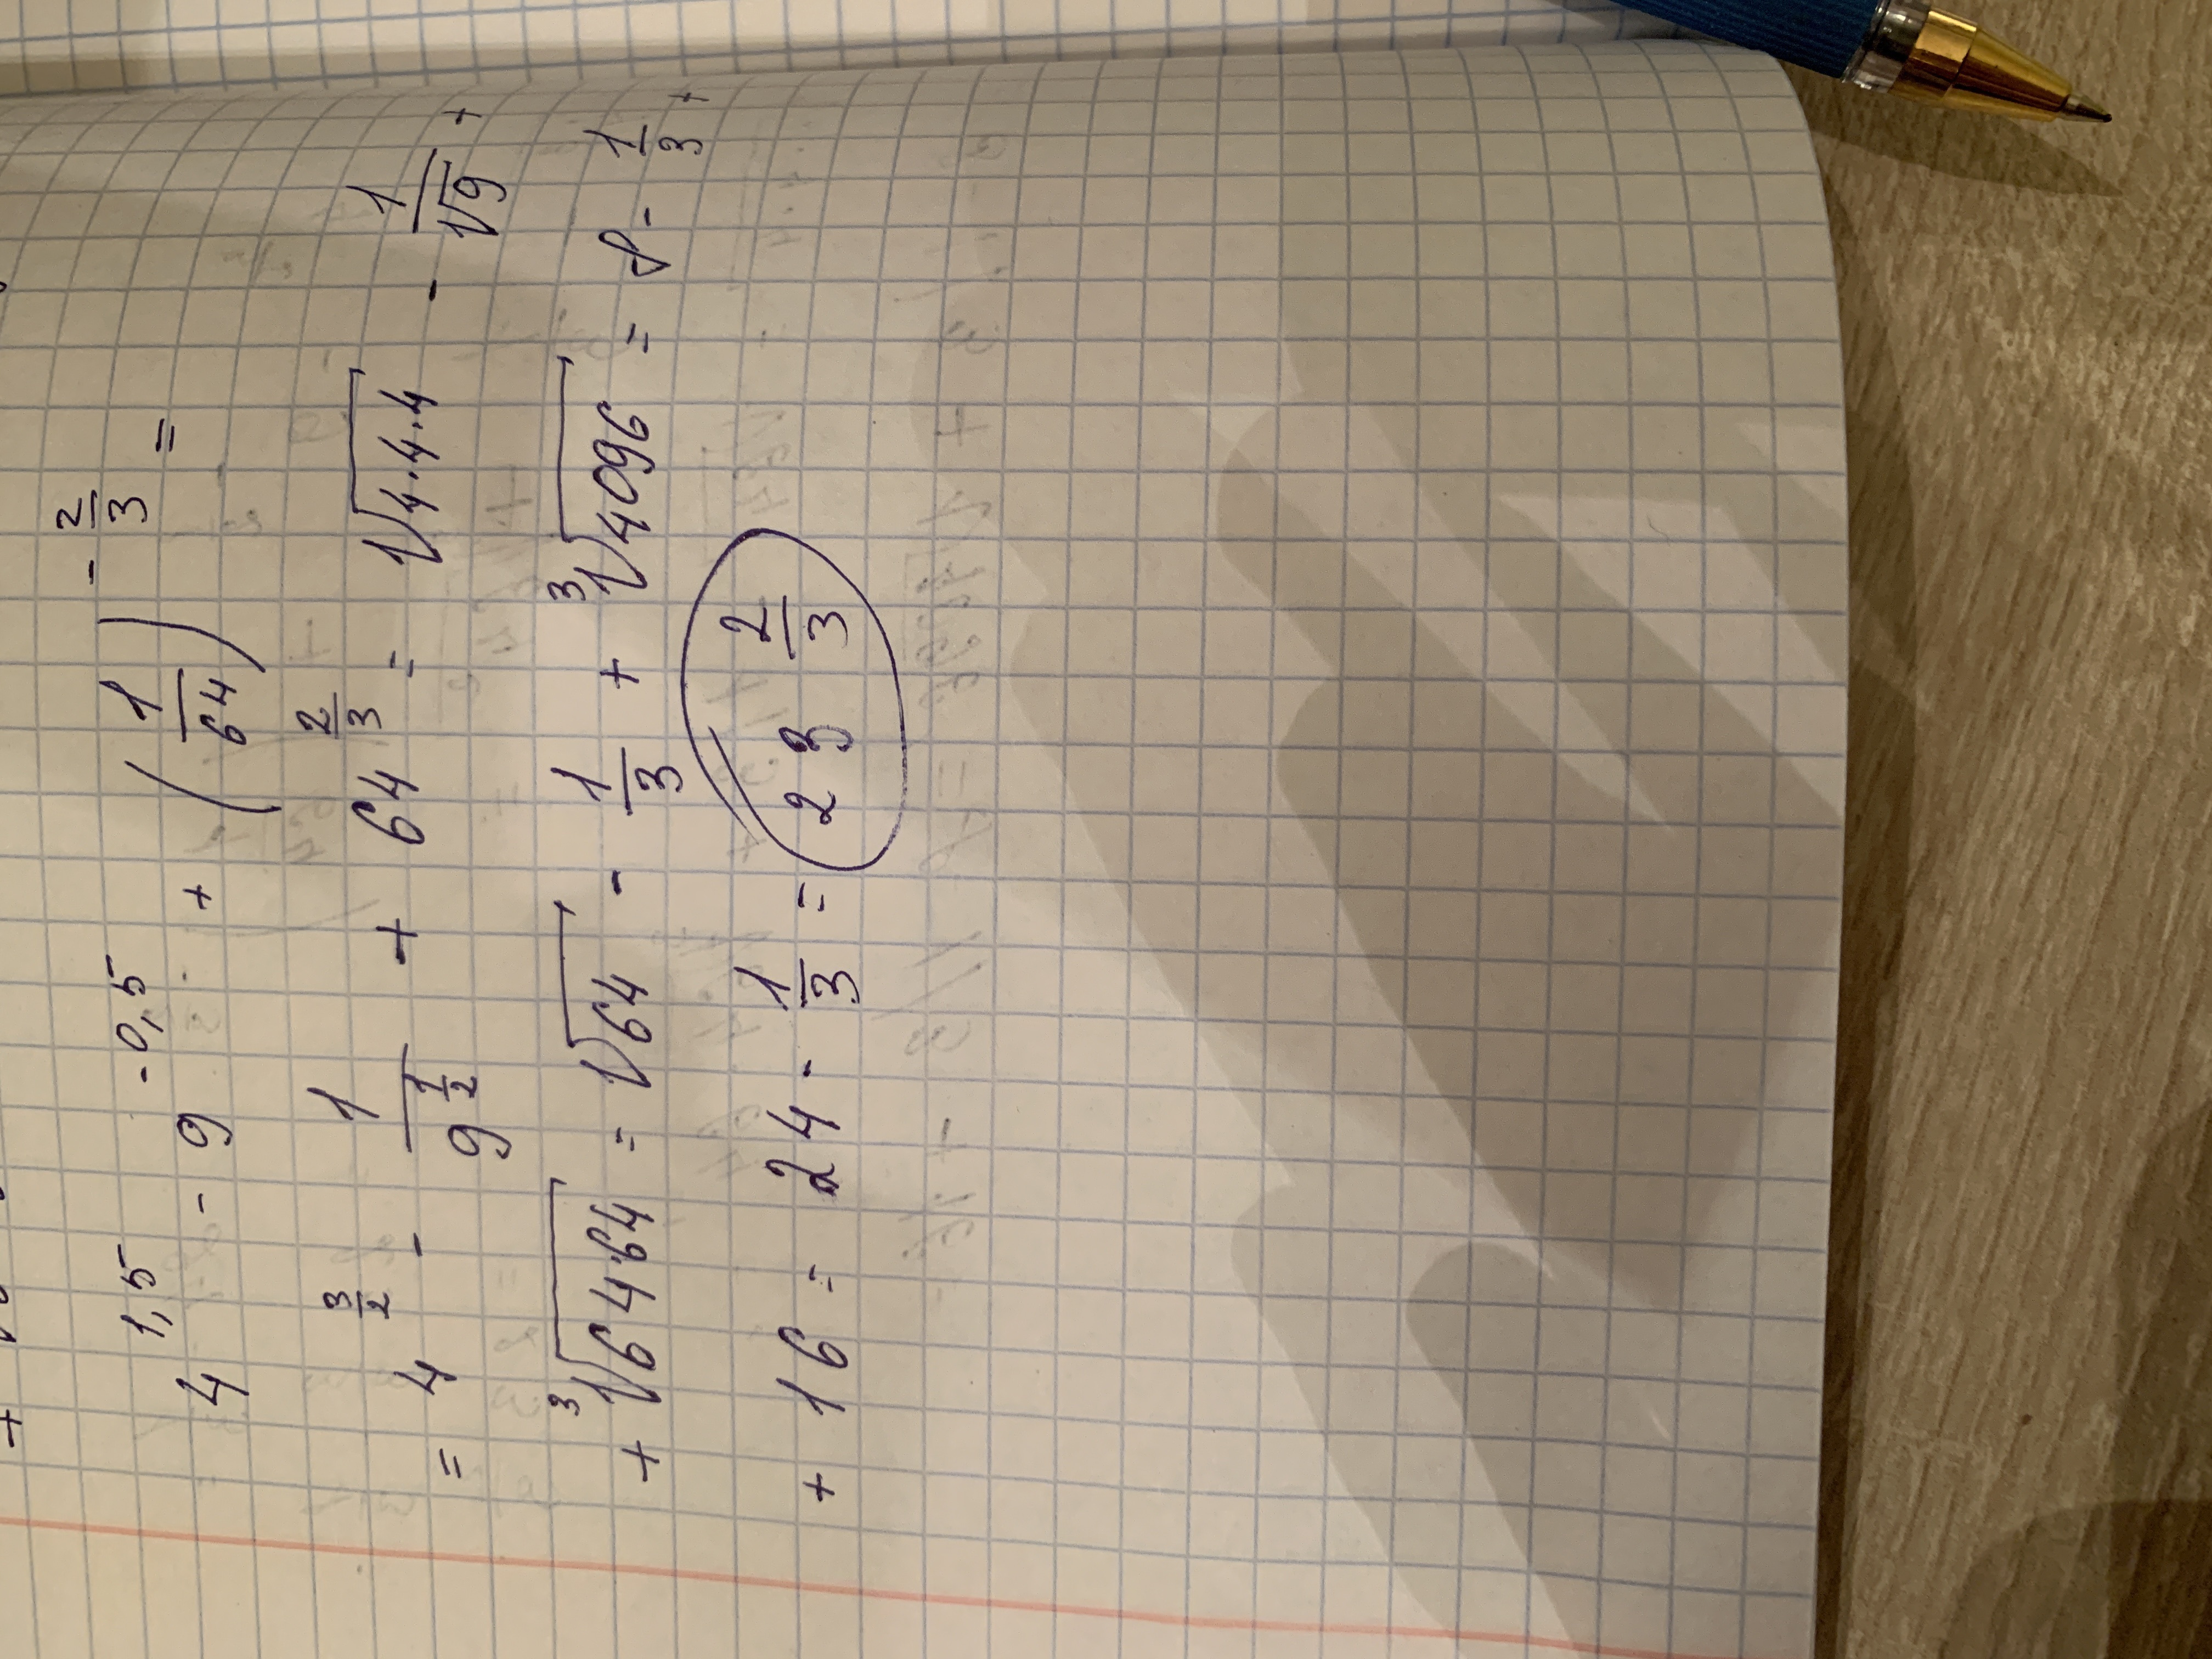 4^{1,5} - 9^{-0,5} + (\frac{1}{64})^{-\frac{2}{3}} =
= 4^{\frac{3}{2}} - \frac{1}{9^{\frac{1}{2}}} + 64^{\frac{2}{3}} = \sqrt{4·4·4} - \frac{1}{\sqrt{9}} +
+ \sqrt[3]{64·64} = \sqrt{64} - \frac{1}{3} + \sqrt[3]{4096} = 8 - \frac{1}{3} +
+ 16 = 24 - \frac{1}{3} = 23\frac{2}{3}